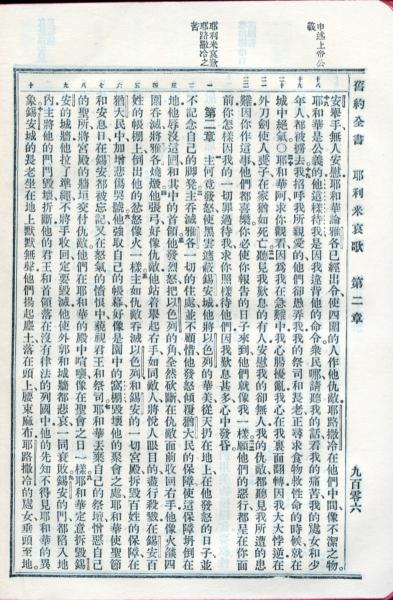 舊約全書　耶利米哀歌　第二章　九百零六
耶利米哀歌
耶路撒冷之
苦
安舉手無人安慰耶和華論雅各已經出令使四圍的人作他仇敵耶路撒冷在他們中間像不潔之物。
耶和華是公義的他這樣待我是因我違背他的命令衆民哪請聽我的話看我的痛苦我的處女和少
年人都被擄去我招呼我所親愛的他們卻愚弄我我的祭司和長老正尋求食物救性命的時候就在
城中絕氣〇耶和華阿求你觀看因爲我在急難中我心腸擾亂我心在我裏面翻轉因我大大悖逆在
外刀劍使人喪子在家猶如死亡聽見我歎息的有人安慰我的卻無人我的仇敵都聽見我所遭的患
難因你作這事他們都喜樂你必使你報告的日子來到他們就像我一樣願他們的惡行都呈在你面
前你怎樣因我的一切罪過待我求你照樣待他們因我歎息甚多心中發昏
第二章　主何竟發怒使黑雲遮蔽錫安城他將以色列的華美從天扔在地上在他發怒的日子並
不記念自己的腳凳主吞滅雅各一切的住處並不顧惜他發怒傾覆猶大民的保障使這保障坍倒在
地他辱沒這國和其中的首領他發烈怒把以色列的角全然砍斷在仇敵面前收回右手他像火燄四
圍吞滅將雅各燒燬他張弓好像仇敵他站着舉起右手如同敵人將悅人眼目的盡行殺戮在錫安百
姓的帳棚上倒出他的忿怒像火一樣主如仇敵吞滅以色列和錫安的一切宮殿拆毀百姓的保障在
猶大民中加增悲傷哭號他強取自己的帳幕好像是園中的窩棚毀壞他的聚會之處耶和華使聖節
和安息日在錫安都被忘記又在怒氣的憤恨中藐視君王和祭司耶和華丟棄自己的祭壇憎惡自己
的聖所將宮殿的牆垣交付仇敵他們在耶和華的殿中喧嚷像在聖會之日一樣耶和華定意拆毀錫
安的城牆他拉了準繩不將手收回定要毀滅他使外郭和城牆都悲哀一同衰敗錫安的門都陷入地
內主將他的門閂毀壞折斷他的君王和首領落在沒有律法的列國中他的先知不得見耶和華的異
象錫安城的長老坐在地上默默無聲他們揚起塵土落在頭上腰束麻布耶路撒冷的處女垂頭至地。